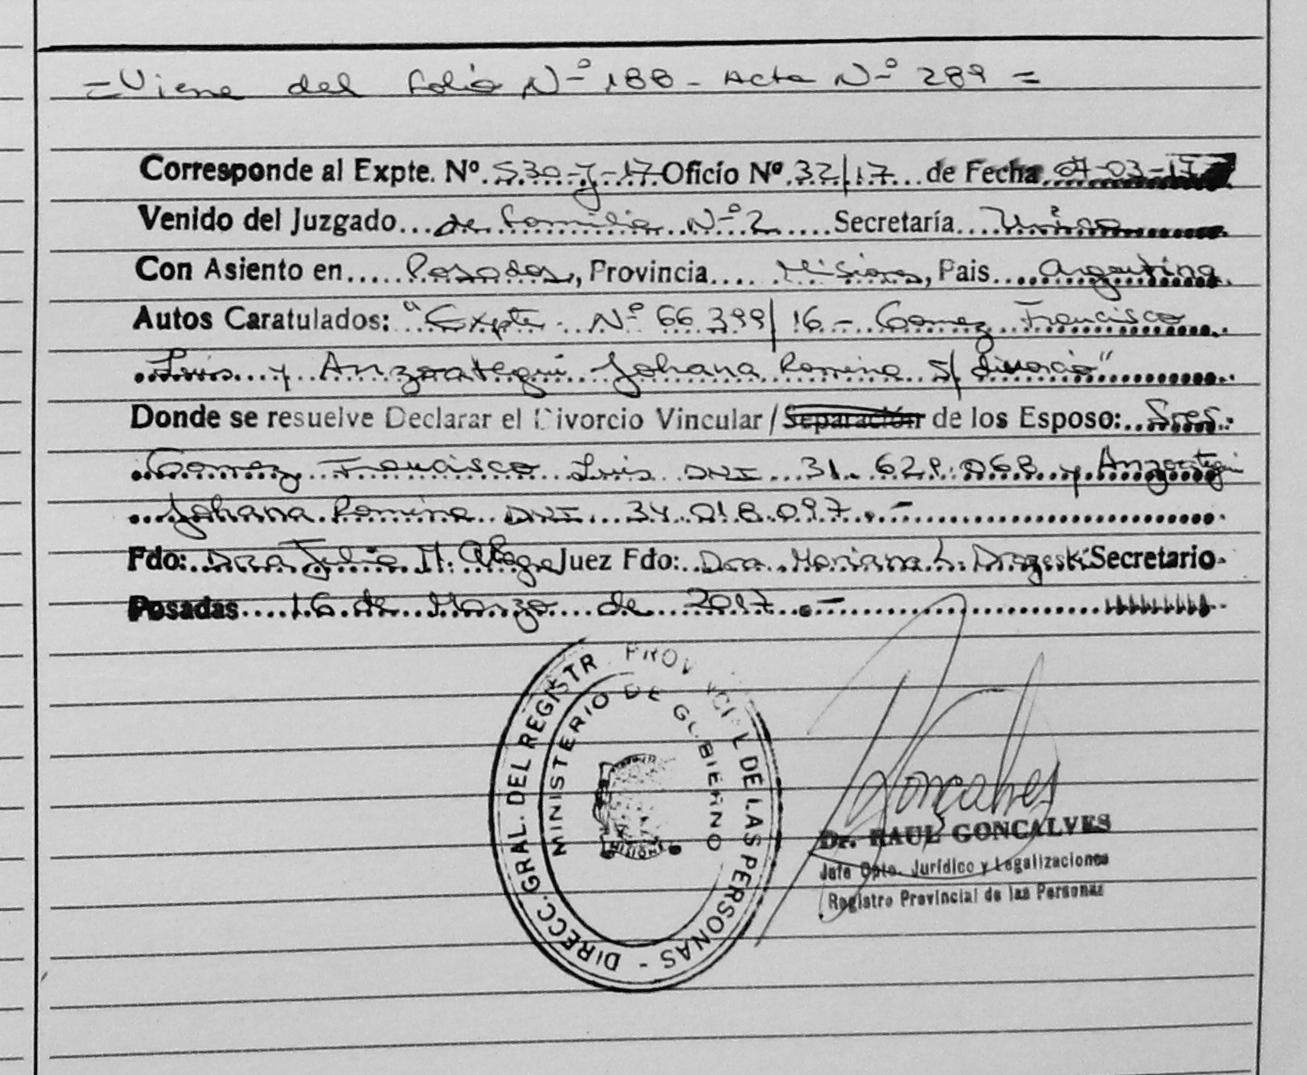 = Viene del folio Nº 188 - Acta Nº 289 =
Corresponde al Expte. Nº 530-J-17 Oficio Nº 32/17 de Fecha 07-03-17
Venido del Juzgado de Familia Nº 2 Secretaría Única
Con Asiento en Posadas, Provincia Misiones, Pais Argentina
Autos Caratulados: "Expte Nº 66.399/16 - Gomez Francisco
Luis y Anzoategui Johana Romina S/ divorcio"
Donde se resuelve Declarar el Divorcio Vincular / Separación de los Esposo: Sres.
Gomez Francisco Luis DNI 31.629.068 y Anzoategui
Johana Romina DNI 34.018.097.-
Fdo: Dra Julia M. Juez Fdo: Dra. Mariana L. Secretario
Posadas 16 de Marzo de 2017.-
DIRECC. GRAL. DEL REGISTR PROVINCIAL DE LAS PERSONAS -
MINISTERIO DE GOBIERNO
MISIONES
Goncalves
Dr. RAUL GONCALVES
Jefe Dpto. Jurídico y Legalizaciones
Registro Provincial de las Personas